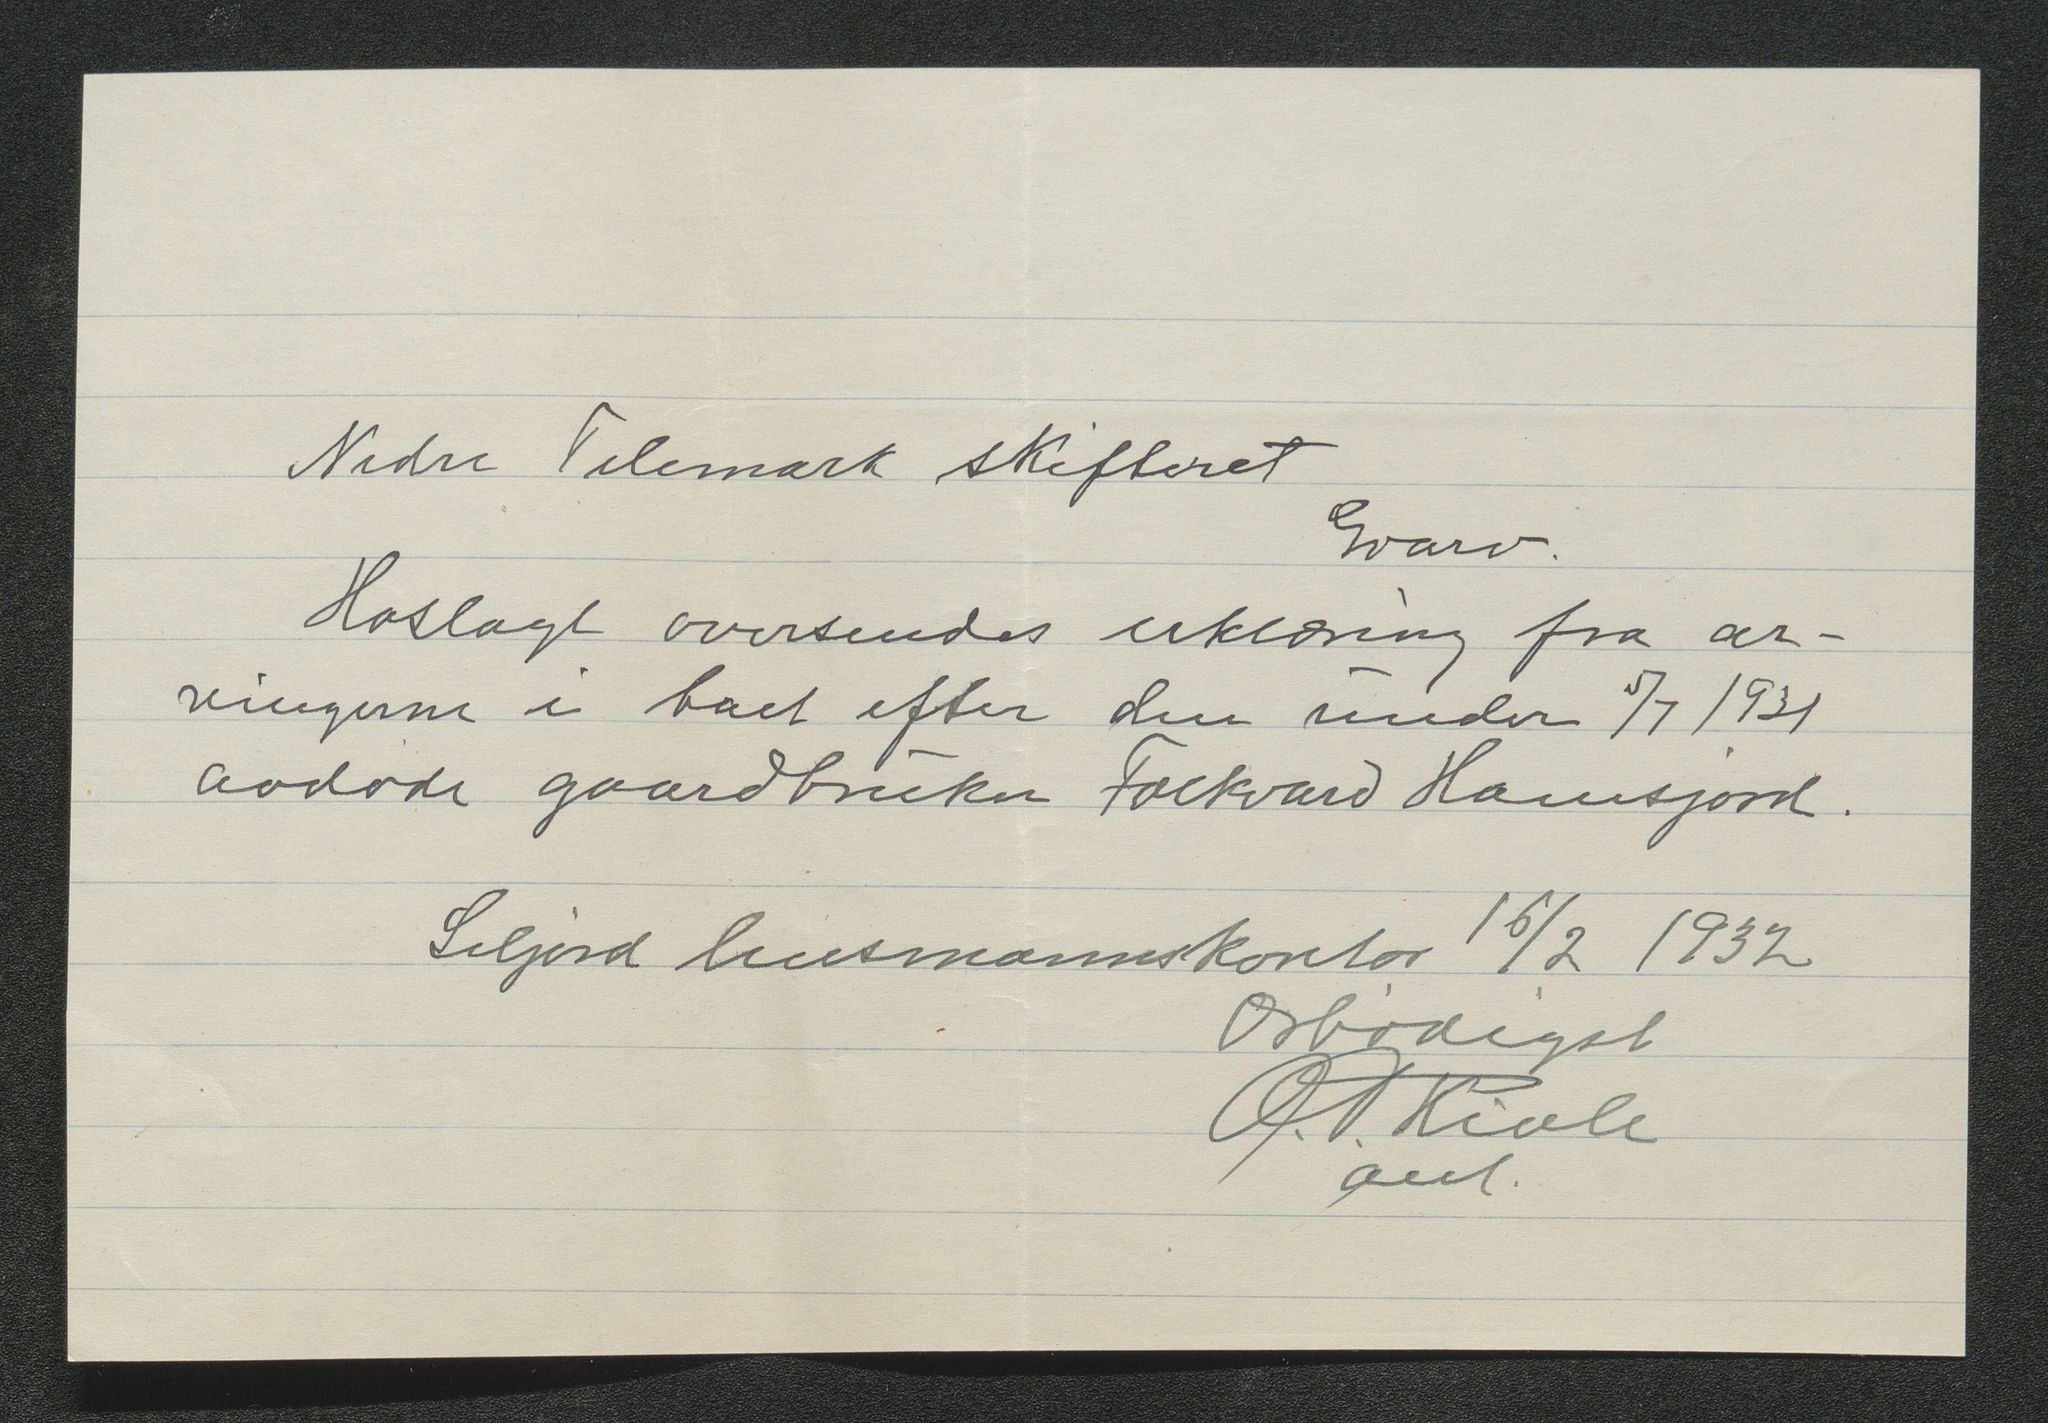 Nedre Telemark skifteret
Gvarv.
Hoslagt oversendes erklæring fra ar-
vingerne i boet efter den under 5/7 1931
avdøde gaardbruker Folkvard Hamsjord.
Seljord lensmannskontor 16/2 1932
Ærbødigst
O. T. Kivle
aut.